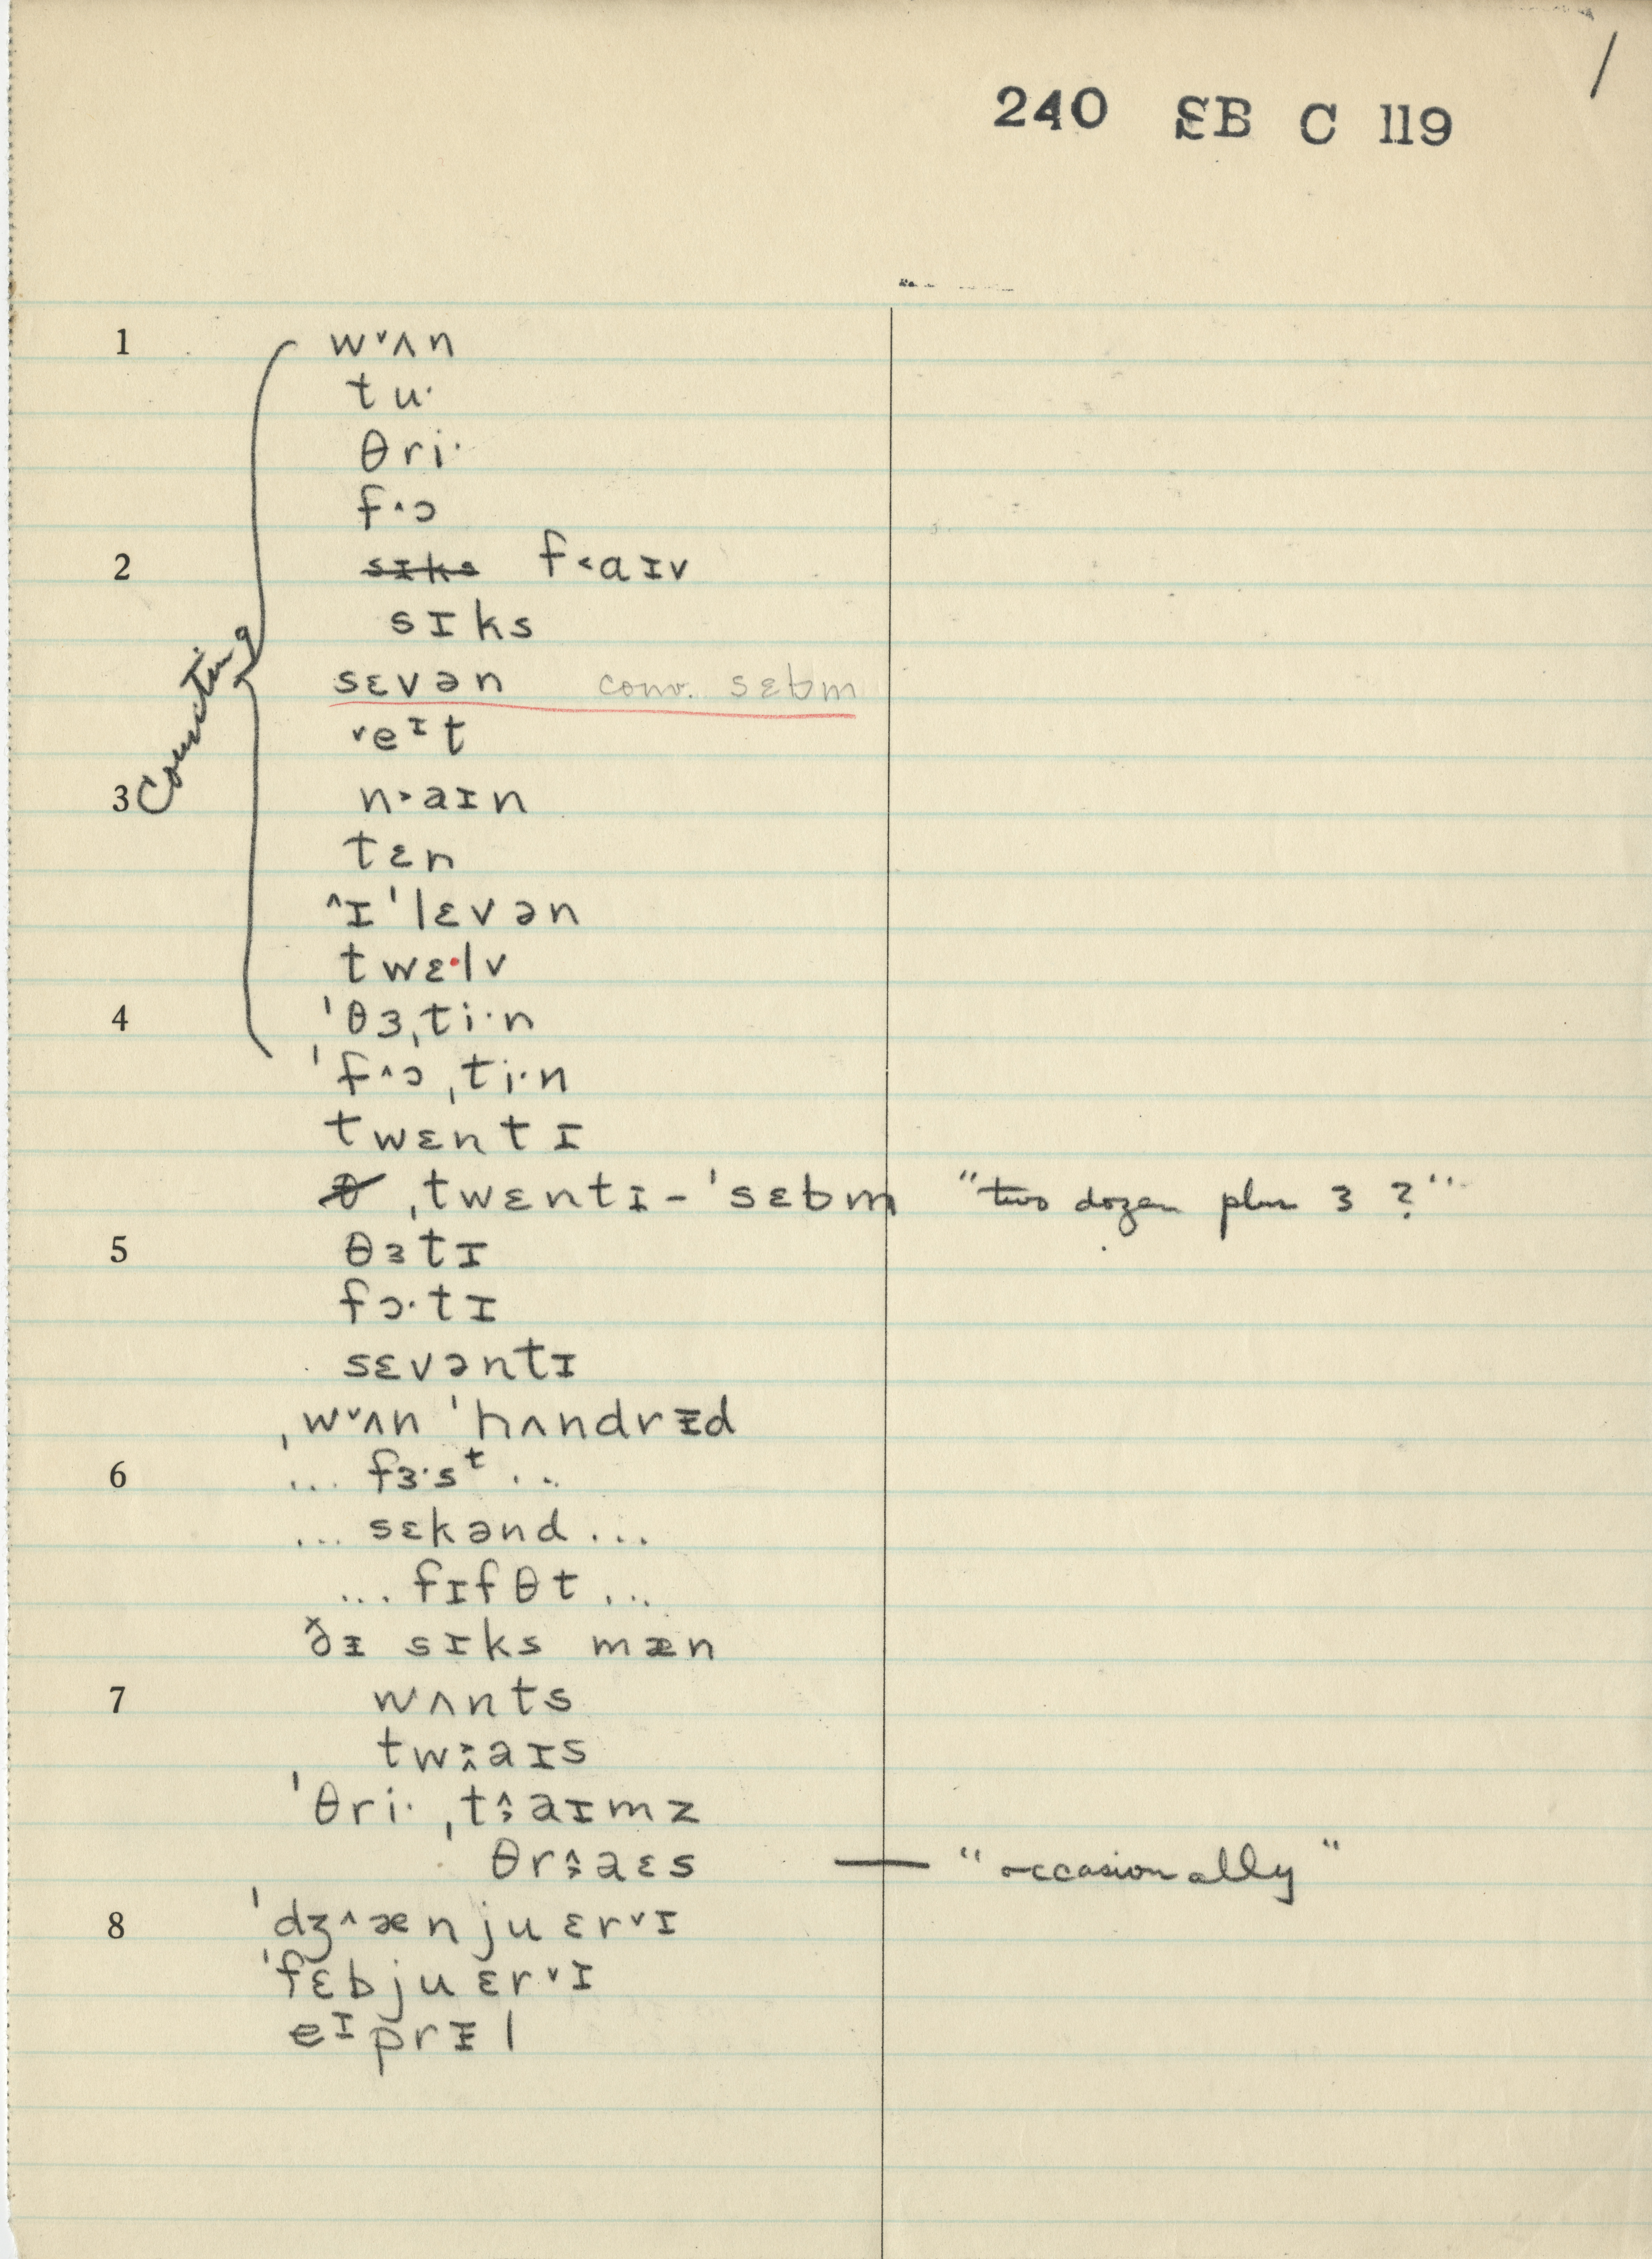 /
240 SB C 119
1 w˅ʌn
tu·
θri·
f˄·ɔ
2 sɪks f˂aɪv
sɪks
sɛvən conv. sɛbm
˅eɪt
3 n˃aɪn
tɛn
˄ɪˈlɛvən
twɛ·lv
4 ˈθɜˌti·n
ˈf˄·ɔˌti·n
Counting
twɛntɪ
θ ˌtwɛntɪ-ˈsɛbm "two dozen plus 3 ?"
5 θɜtɪ
fɔ·tɪ
sɛvəntɪ
ˌw˅ʌn ˈhʌndrɪ̵d
6 ... fɜ·sᵗ ...
... sɛkənd ...
... fɪfθt ...
ðɪ̵ sɪks mæn
7 wʌnts
tw˃˄aɪs
ˈθri· ˌt˄˃aɪmz
θr˄˃aɛs — "occasionally"
8 ˈdʒ˄ænjuɛr˅ɪ
ˈfɛbjuɛr˅ɪ
eɪprɪ̵l